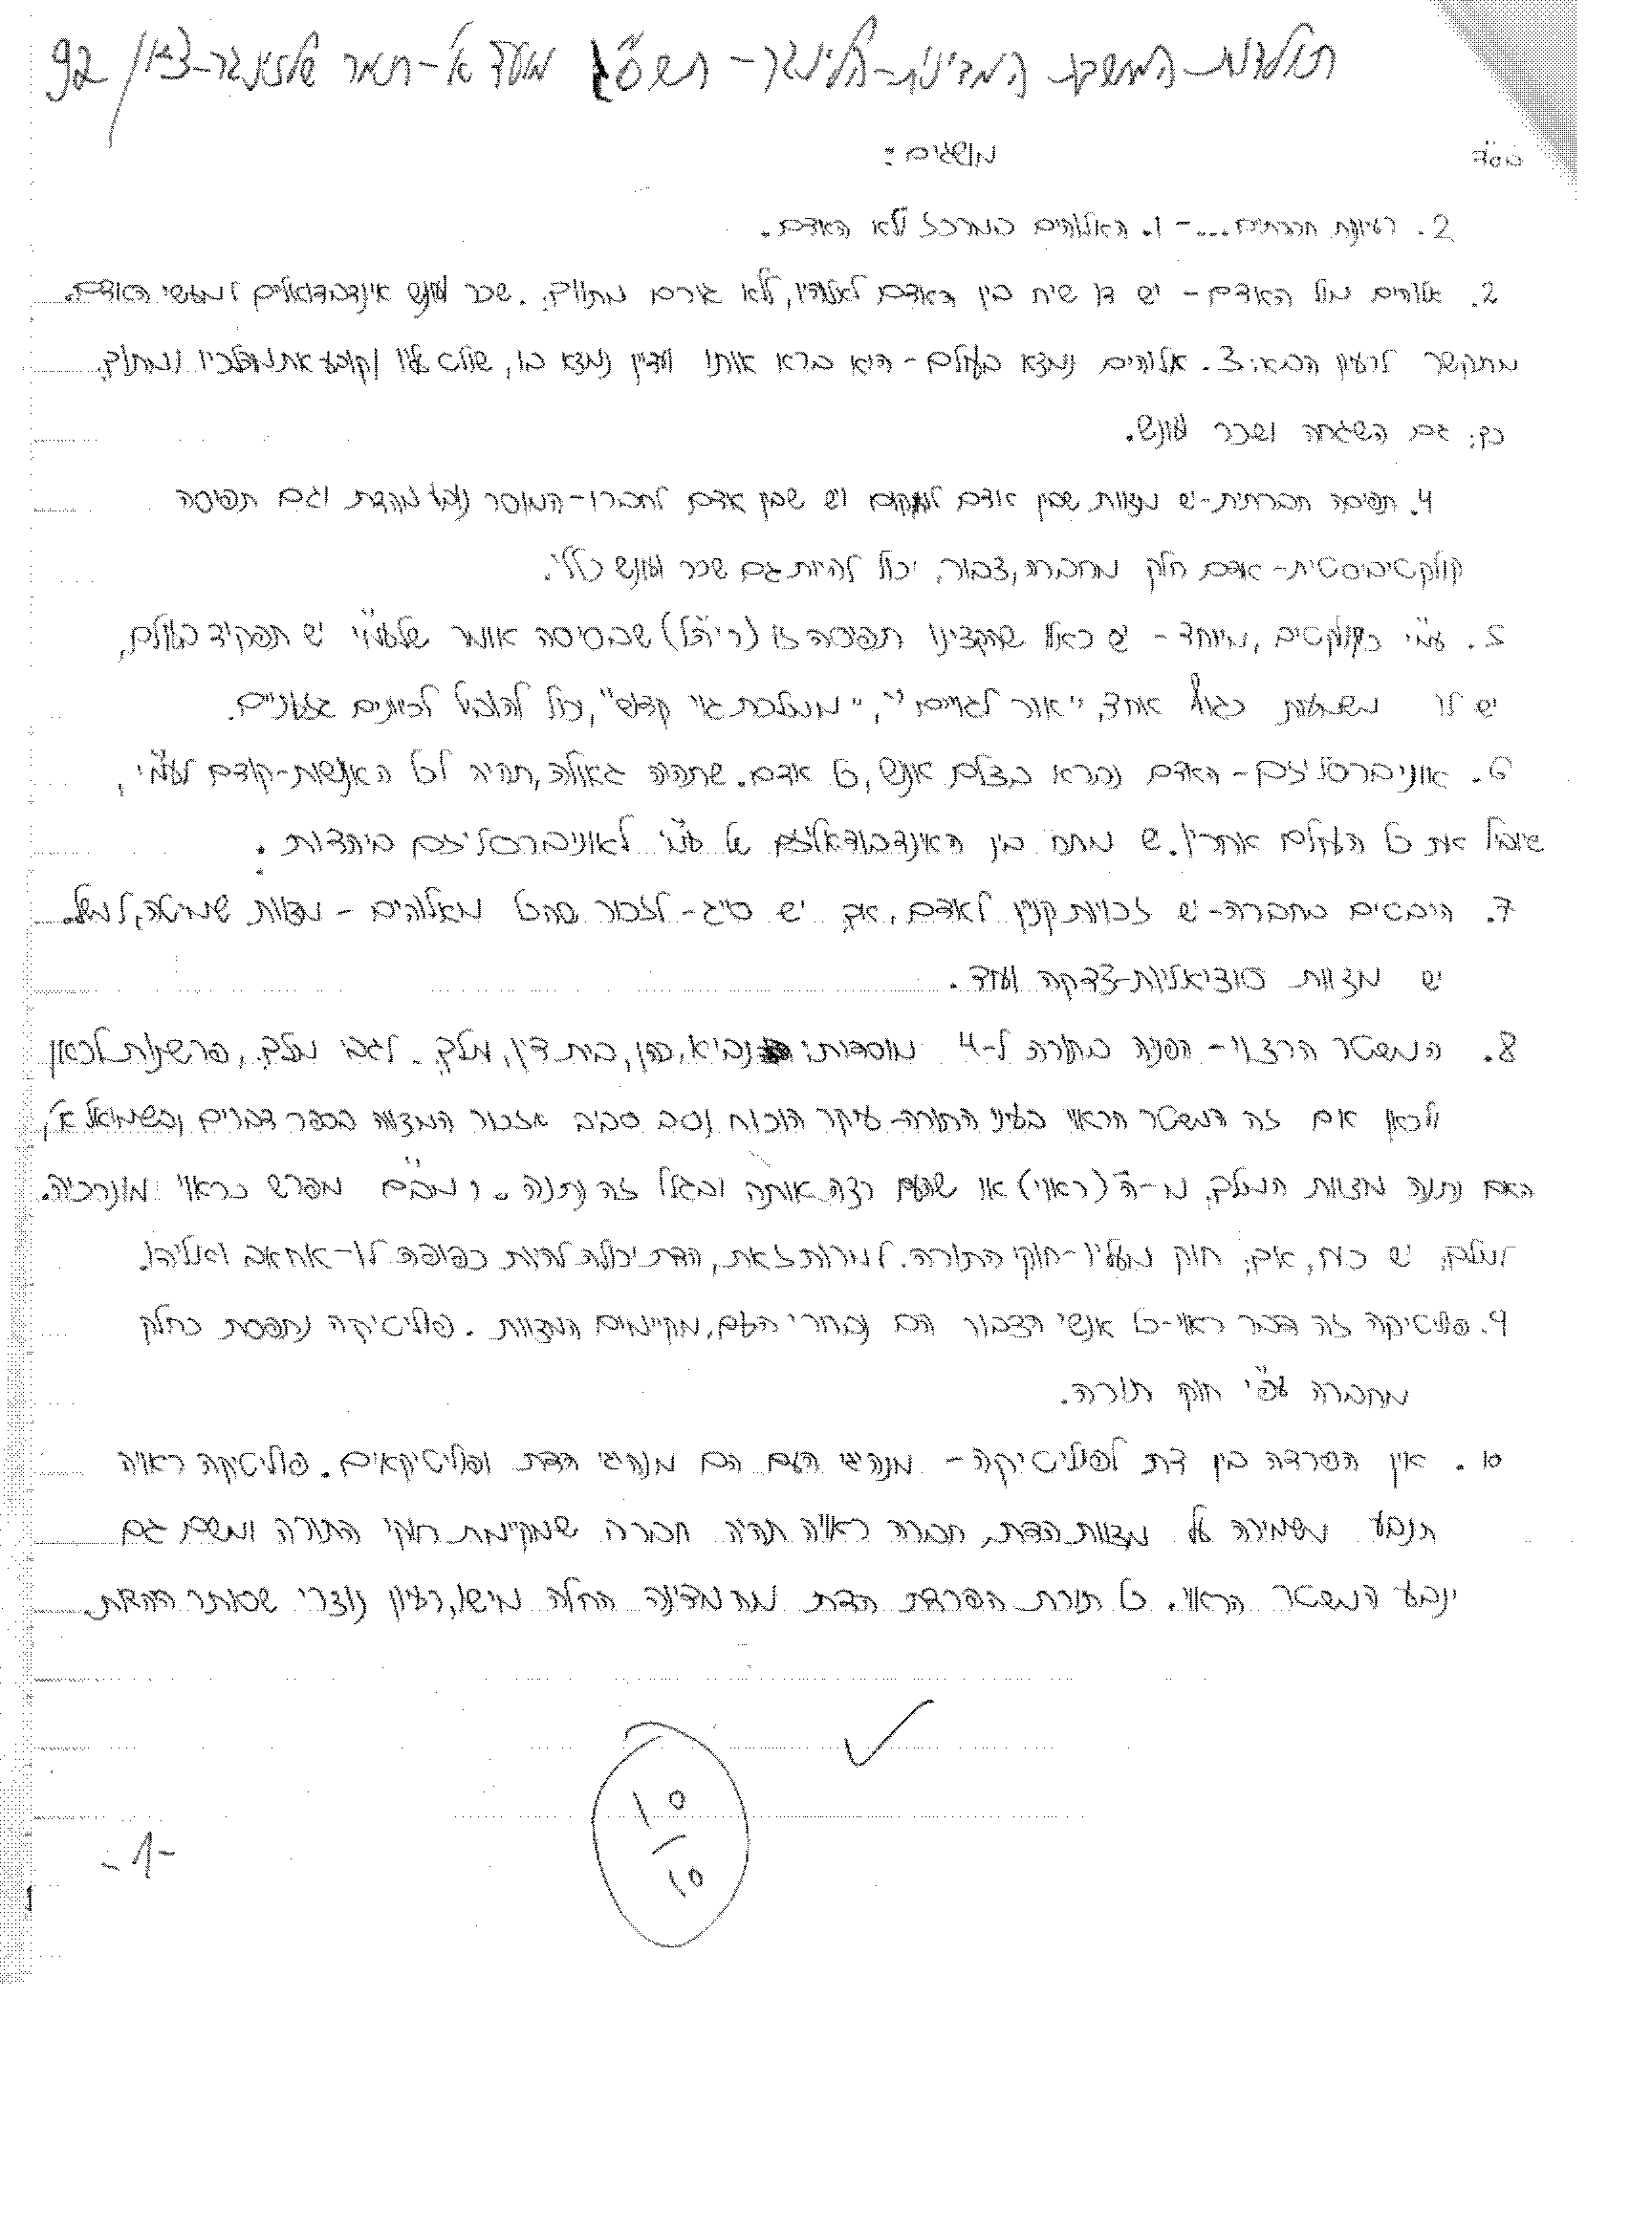 תולדות המחשבה המדינית-הלינגר- תשס"ג מועד א'-תמר שלזינגר-92/
בס"ד
מושגים:
2. רעיונות חברתיים...-1. האלוהים במרכז ולא האדם.
2. אלוהים מול האדם- יש דו שיח בין האדם לאלוהיו, ללא גורם מתווך. שכר ועונש אינדבדואליים למעשי האדם.
מתקשר לרעיון הבא: 3. אלוהים נמצא בעולם- היא ברא אותו ועדיין נמצא בו, שולט עליו וקובע את מהלכיו ומתוך
כך: גם השגחה ושכר ועונש.
4. תפיסה חברתית-יש מצוות שבין אדם למקום ויש שבין אדם לחברו-המוסר נובע מהדת וגם תפיסה
קולקטיביסטית-אדם חלק מחברה, צבור, יכול להיות גם שכר ועונש כללי.
5. עמ"י כקולקטיב, מיוחד- יש כאלו שהקצינו תפיסה זו (ריה"ל) שבסיסה אומר שלעמ"י יש תפקיד בעולם,
יש לו משמעות כגוף אחד, "אור לגויים", "ממלכת גוי קדוש", יכול להוביל לכיוונים גזעניים.
6. אוניברסליזם- האדם נברא בצלם אנוש, כל אדם. שתהיה גאולה, תהיה לכל האנושות-קודם לעמ"י,
שיוביל את כל העולם אחריו. יש מתח בין האינדבודאליזם של עמ"י לאוניברסליזם ביהדות.
7. היבטים בחברה-יש זכויות קניין לאדם, אך יש סייג- לזכור שהכל מאלוהים - מצוות שמיטה, למשל.
יש מצוות סוציאליות-צדקה ועוד.
8. המשטר הרצוי- הפניה בתורה ל-4 מוסדות: נביא, כהן, בית דין, מלך. לגבי מלך, פרשנות לכאן
ולכאן אם זה המשטר הראוי בעיני התורה-עיקר הוכוח נסב סביב אזכור המצווה בספר דברים ובשמואל א',
האם נתנה מצוות המלך, מ-ה' (ראוי) או שהעם רצה אותה ובגלל זה ניתנה. רמב"ם מפרש כראוי מונרכיה.
למלך, יש כח, אך, חוק מעליו-חוקי התורה. למרות זאת, הדת יכולה להיות כפופה לו-אחאב ואליהו.
9. פוליטיקה זה דבר ראוי-כל אנשי הצבור הם נבחרי העם, מקיימים המצוות. פוליטיקה נתפסת כחלק
מחברה עפ"י חוק תורה.
10. אין הפרדה בין דת לפוליטיקה- מנהיגי העם הם מנהיגי הדת ופוליטיקאים. פוליטיקה ראויה
תנבע משמירה על מצוות הדת, חברה ראויה תהיה חברה שמקיימת חוקי התורה ומשם גם
ינבע המשטר הראוי. כל תורת הפרדת הדת מהמדינה החלה מישו, רעיון נוצרי שסותר היהדות.
10
10
-1-
1